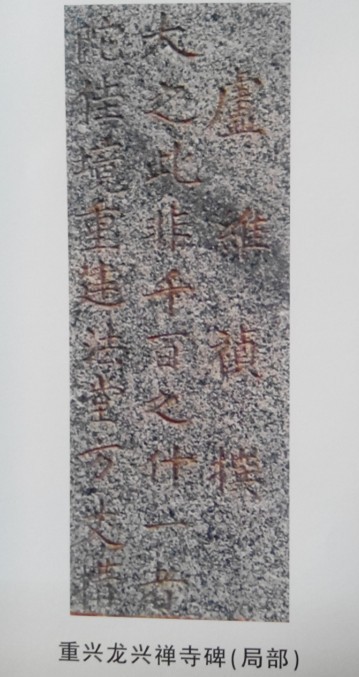 盧維禎撰
大之此非千百之什一者
陀佳境重建法堂方丈僧
重兴龙兴禅寺碑(局部)